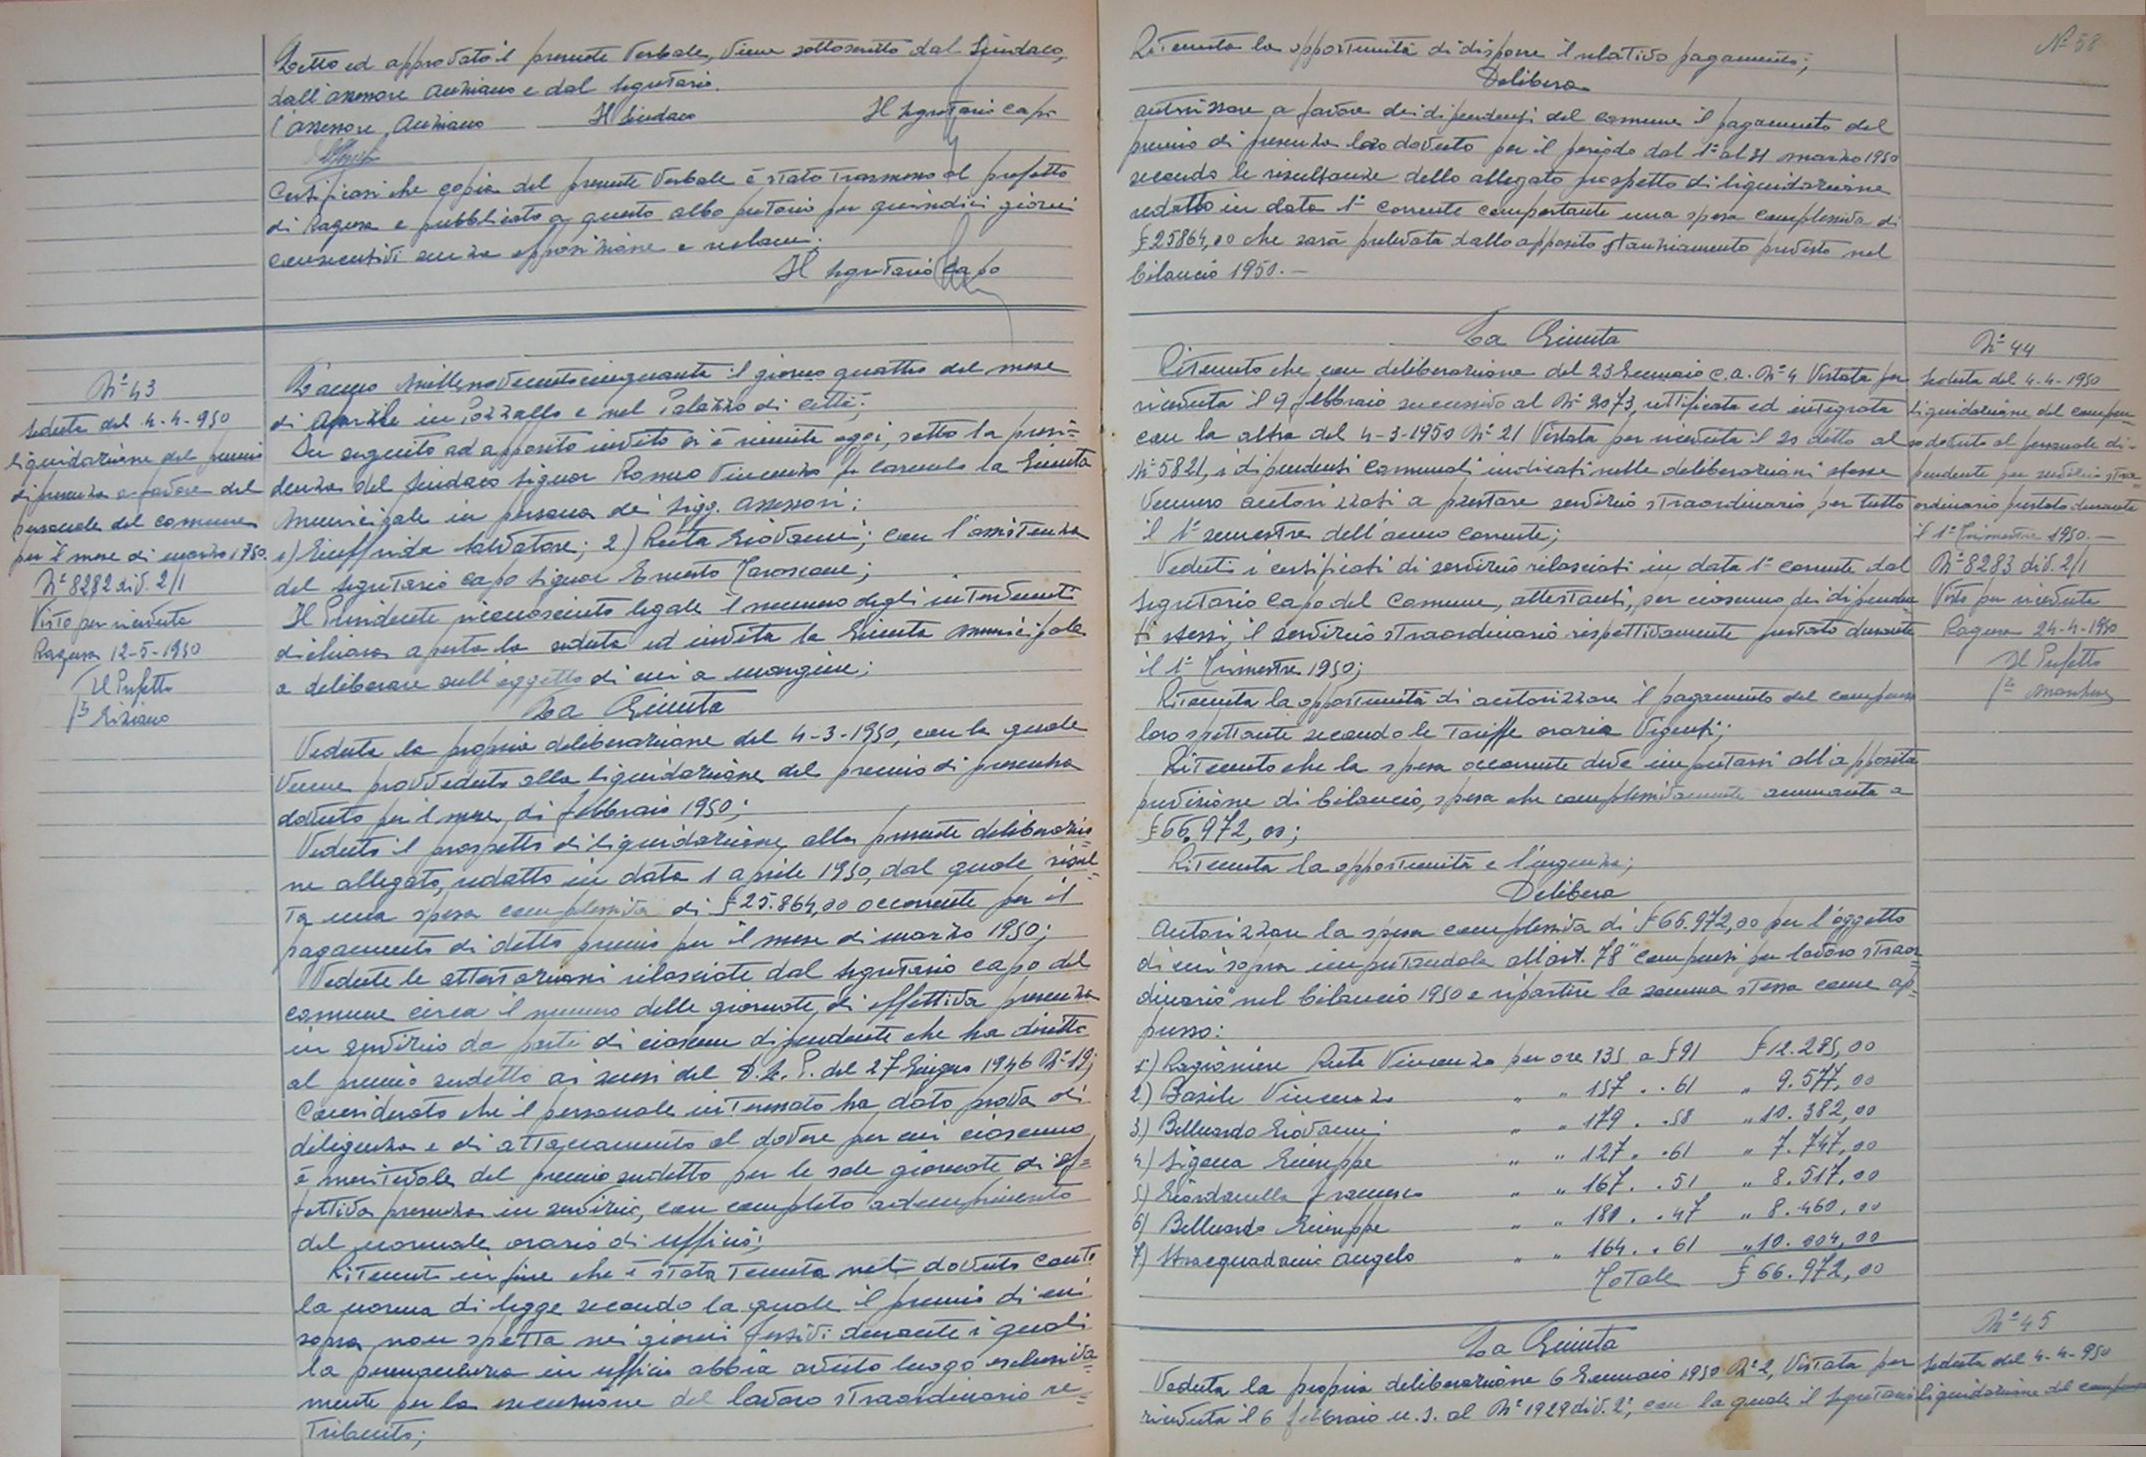 Letto ed approvato il presente verbale, viene sottoscritto dal Sindaco,
dall'assessore anziano e dal segretario.
l'assessore anziano Il Sindaco Il Segretario Capo
Certificasi che copia del presente verbale è stato trasmesso al prefetto
di Ragusa e pubblicato a questo albo pretorio per quindici giorni
consecutivi senza opposizione e reclami.
Il Segretario Capo
N° 43
Seduta del 4-4-950
liquidazione del premio
di presenza a favore del
personale del comune
per il mese di marzo 1950.
N° 8282 div. 2/1
Visto per ricevuta
Ragusa 12-5-1950
Il Prefetto
L'anno millenovecentocinquanta il giorno quattro del mese
di Aprile in Pozzallo e nel Palazzo di città;
In seguito ad apposito invito si è riunita oggi, sotto la presi=
denza del Sindaco Signor Romeo Vincenzo fu Carmelo la Giunta
Municipale in persona dei Sigg. assessori:
1) Giuffrida Salvatore; 2) Ruta Giovanni; con l'assistenza
del Segretario Capo Signor Ernesto
Il Presidente riconosciuto legale il numero degli intervenuti
dichiara aperta la seduta ed invita la Giunta Municipale
a deliberare sull'oggetto di cui a margine;
La Giunta
Veduta la propria deliberazione del 4-3-1950, con la quale
venne provveduto alla liquidazione del premio di presenza
dovuto per il mese di febbraio 1950;
Veduto il prospetto di liquidazione, alla presente deliberazio=
ne allegato, redatto in data 1 aprile 1950, dal quale risul=
ta una spesa complessiva di £ 25.864,00 occorrente per il
pagamento di detto premio per il mese di marzo 1950;
Vedute le attestazioni rilasciate dal Segretario Capo del
comune circa il numero delle giornate di effettiva presenza
in servizio da parte di ciascun dipendente che ha diritto
al premio sudetto ai sensi del D.L.P. del 27 Giugno 1946 N° 19;
Considerato che il personale interessato ha dato prova di
diligenza e di attaccamento al dovere per cui ciascuno
è meritevole del premio sudetto per le sole giornate di ef=
fettiva presenza in servizio, con completo adempimento
del normale orario di ufficio;
Ritenuto infine che è stata tenuta nel dovuto conto
la norma di legge secondo la quale il premio di cui
sopra non spetta nei giorni festivi durante i quali
la permanenza in ufficio abbia avuto luogo esclusiva=
mente per la esecuzione del lavoro straordinario re=
tribuito;
N° 58
Ritenuta la opportunità di disporre il relativo pagamento;
Delibera
autorizzare a favore dei dipendenti del comune il pagamento del
premio di presenza loro dovuto per il periodo dal 1° al 31 marzo 1950
secondo le risultanze dello allegato prospetto di liquidazione
redatto in data 1° corrente comportante una spesa complessiva di
£ 25864,00 che sarà prelevata dallo apposito stanziamento previsto nel
bilancio 1950.-
La Giunta
Ritenuto che con deliberazione del 23 Gennaio c.a. N° 4 Vistata per
ricevuta il 9 febbraio successivo al N° 2073, rettificata ed integrata
con la altra del 4-3-1950 N° 21 Vistata per ricevuta il 20 detto al
N° 5821, i dipendenti Comunali indicati nelle deliberazioni stesse
vennero autorizzati a prestare servizio straordinario per tutto
il 1° semestre dell'anno corrente;
Veduti i certificati di servizio rilasciati in data 1° corrente dal
Segretario Capo del Comune, attestanti, per ciascuno dei dipenden
ti stessi, il servizio straordinario rispettivamente prestato durante
il 1° Trimestre 1950;
Ritenuta la opportunità di autorizzare il pagamento del compenso
loro spettante secondo le tariffe orarie vigenti;
Ritenuto che la spesa occorrente deve imputarsi all'apposita
previsione di bilancio, spesa che complessivamente ammonta a
£ 66.972,00;
Ritenuta la opportunità e l'urgenza;
Delibera
Autorizzare la spesa complessiva di £ 66.972,00 per l'oggetto
di cui sopra imputandola all'art. 78 "compensi per lavoro straor=
dinario" nel bilancio 1950 e ripartire la somma stessa come ap=
presso:
1) Ragioniere Ruta Vincenzo per ore 135 a £ 91 £ 12.285,00
2) Basile Vincenzo " " 157 . . 61 " 9.577,00
3) Belluardo Giovanni " " 179 . . 58 " 10.382,00
4) Sigona Giuseppe " " 127 . . 61 " 7.747,00
5) Giordanella Francesco " " 167 . . 51 " 8.517,00
6) Belluardo Giuseppe " " 180 . . 47 " 8.460,00
7) Stracquadanio Angelo " " 164 . . 61 " 10.004,00
Totale £ 66.972,00
N° 44
Seduta del 4-4-1950
liquidazione del compen=
so dovuto al personale di=
pendente per servizio stra=
ordinario prestato durante
il 1° Trimestre 1950.-
N° 8283 div. 2/1
Visto per ricevuta
Ragusa 24-4-1950
Il Prefetto
La Giunta
Veduta la propria deliberazione 6 Gennaio 1950 N° 2, Vistata per
ricevuta il 6 febbraio u.s. al N° 1929 div. 2°, con la quale il Segretario
N° 45
Seduta del 4-4-950
liquidazione del compenso